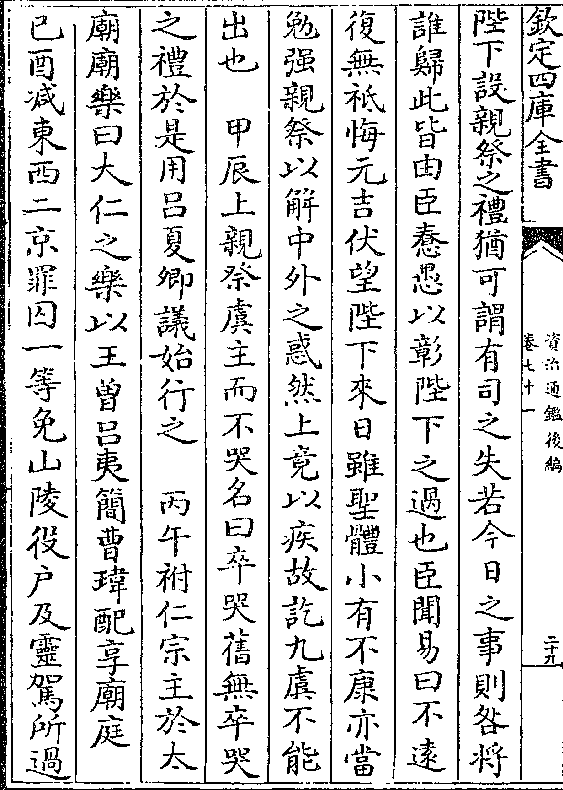 欽定四庫全書
資治通鑑後編
卷七十一
二十九
陛下設親祭之禮猶可謂有司之失若今日之事則咎將
誰歸此皆由臣惷愚以彰陛下之過也臣聞易曰不逺
復無祇悔元吉伏望陛下來日雖聖體小有不康亦當
勉强親祭以解中外之惑然上竟以疾故訖九虞不能
出也　甲辰上親祭虞主而不哭名曰卒哭舊無卒哭
之禮於是用吕夏卿議始行之　丙午祔仁宗主於太
廟廟樂曰大仁之樂以王曾吕夷簡曹瑋配享廟庭
己酉減東西二京罪囚一等免山陵役户及靈駕所過